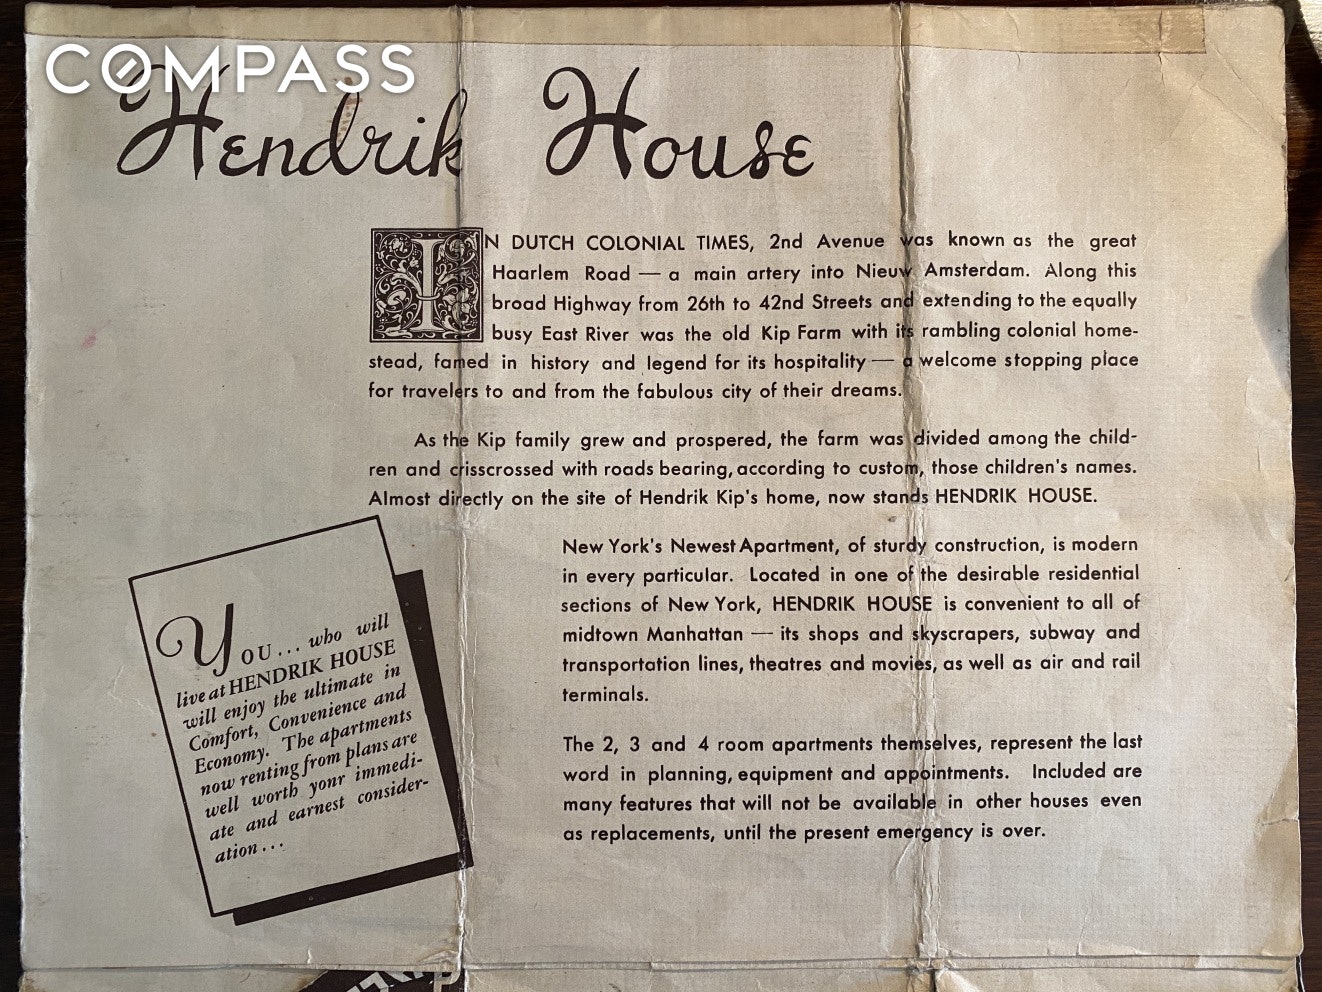 COMPASS
Hendrik House
IN DUTCH COLONIAL TIMES, 2nd Avenue was known as the great
Haarlem Road — a main artery into Nieuw Amsterdam. Along this
broad Highway from 26th to 42nd Streets and extending to the equally
busy East River was the old Kip Farm with its rambling colonial home-
stead, famed in history and legend for its hospitality — a welcome stopping place
for travelers to and from the fabulous city of their dreams.
As the Kip family grew and prospered, the farm was divided among the child-
ren and crisscrossed with roads bearing, according to custom, those children's names.
Almost directly on the site of Hendrik Kip's home, now stands HENDRIK HOUSE.
New York's Newest Apartment, of sturdy construction, is modern
in every particular. Located in one of the desirable residential
sections of New York, HENDRIK HOUSE is convenient to all of
midtown Manhattan — its shops and skyscrapers, subway and
transportation lines, theatres and movies, as well as air and rail
terminals.
The 2, 3 and 4 room apartments themselves, represent the last
word in planning, equipment and appointments. Included are
many features that will not be available in other houses even
as replacements, until the present emergency is over.
YOU... who will
live at HENDRIK HOUSE
will enjoy the ultimate in
Comfort, Convenience and
Economy. The apartments
now renting from plans are
well worth yonr immedi-
ate and earnest consider-
ation...